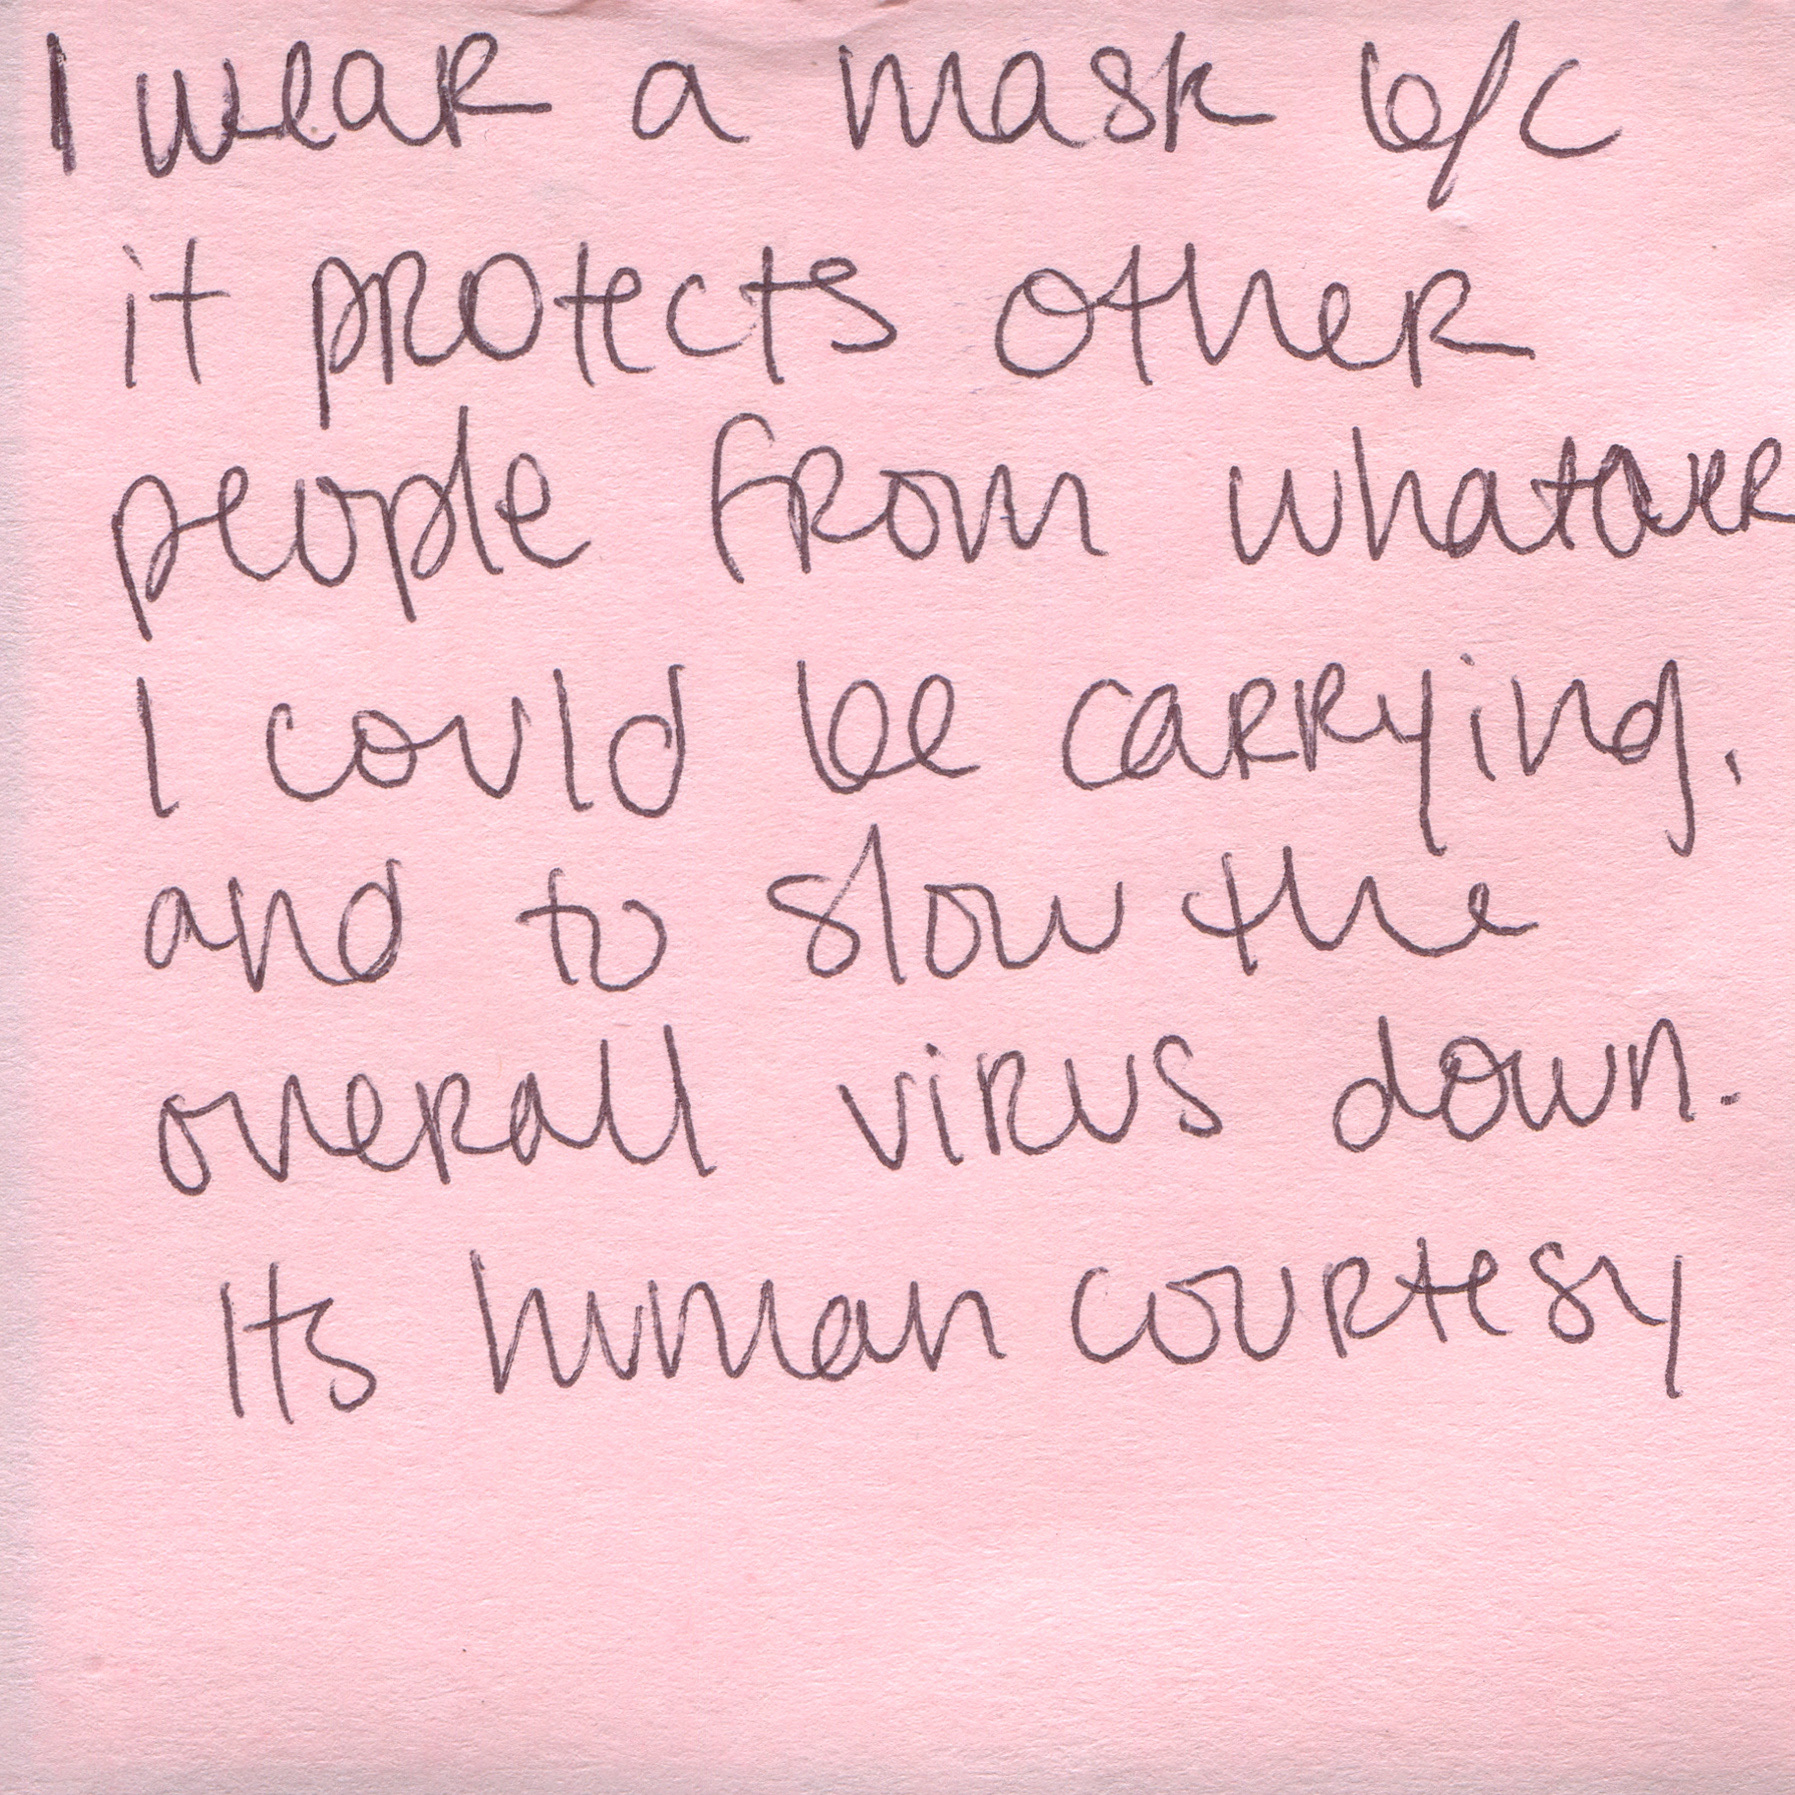 I wear a mask b/c
it protects other
people from whatever
I could be carrying,
and to slow the
overall virus down.
Its human courtesy